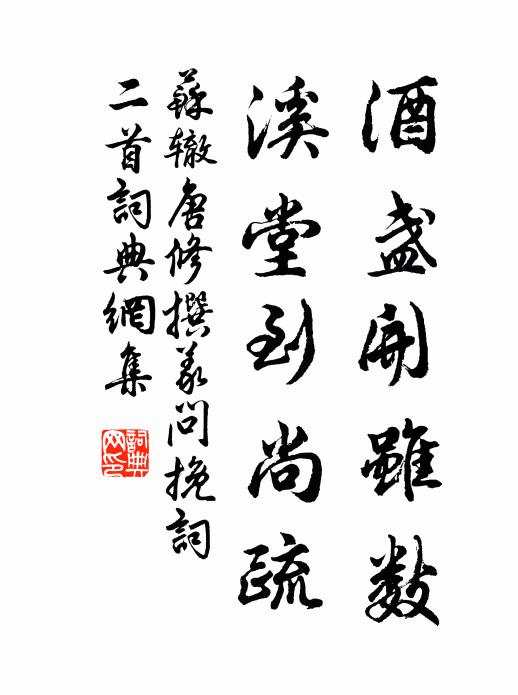 酒盏開雖數
溪堂到尚疏
蘇辙唐修撰義問挽詞
二首詞典網集
詞典
网印